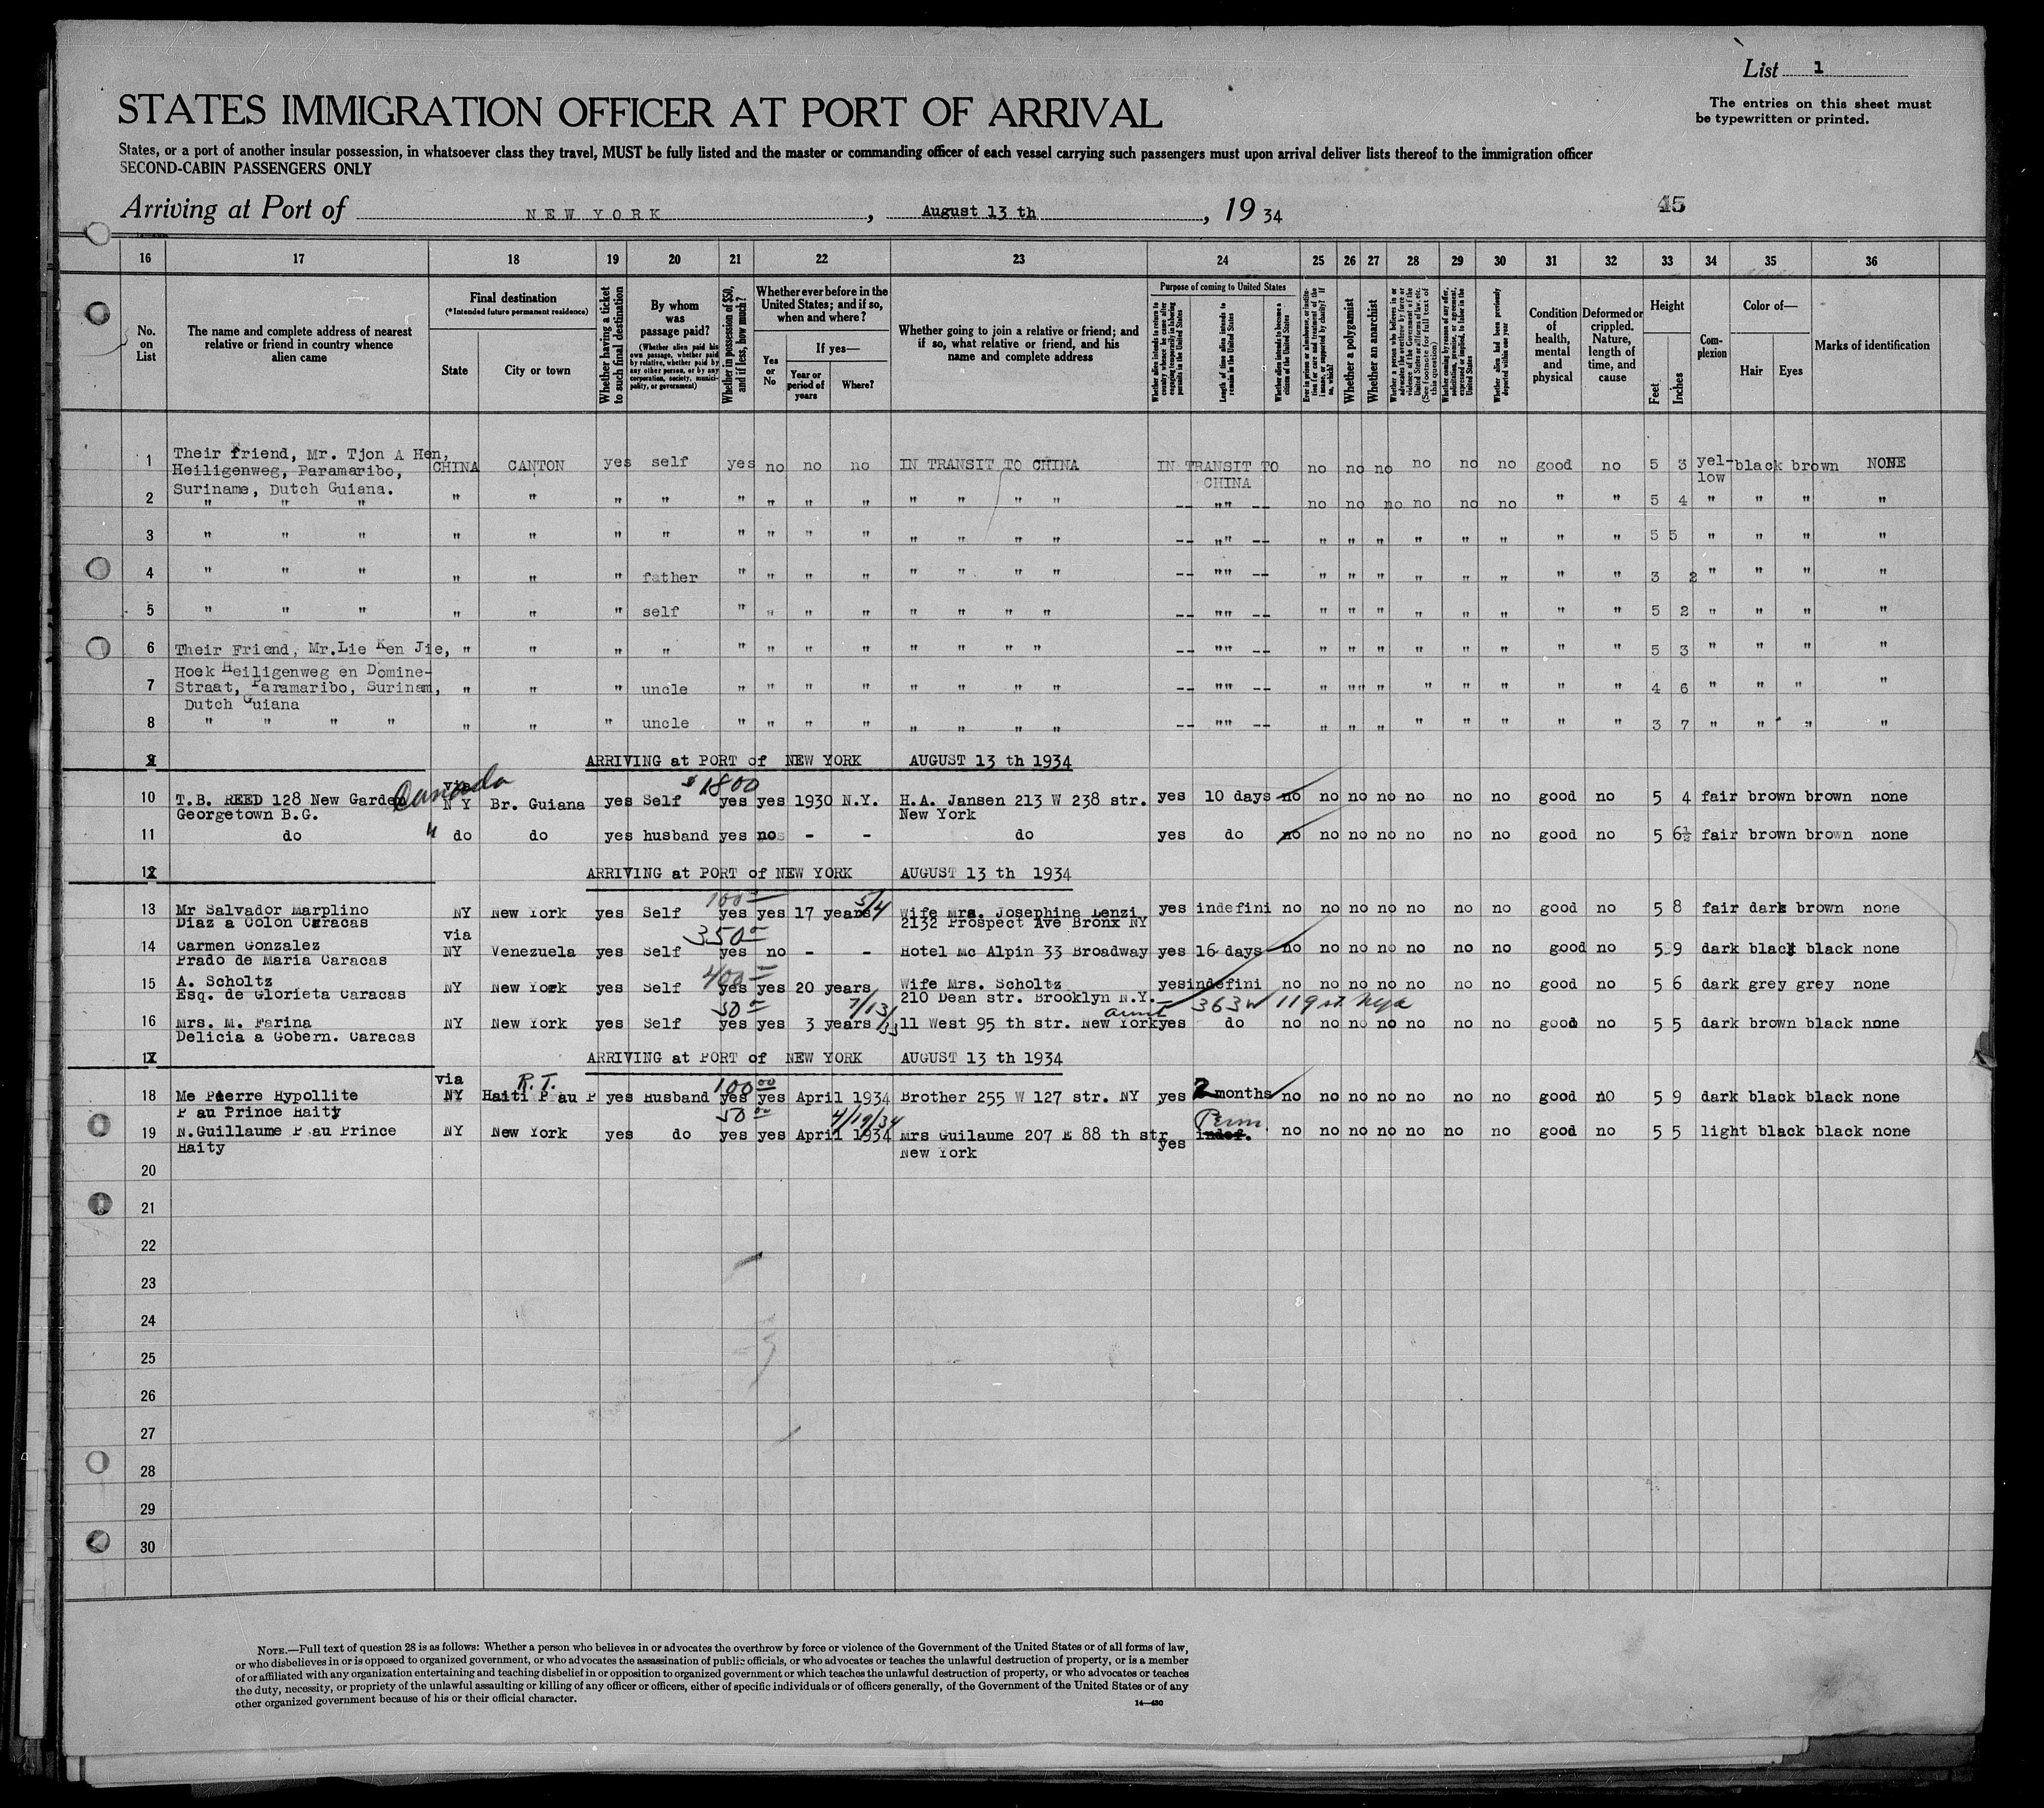 List 1
The entries on this sheet must
be typewritten or printed.
STATES IMMIGRATION OFFICER AT PORT OF ARRIVAL
States, or a port of another insular possession, in whatsoever class they travel, MUST be fully listed and the master or commanding officer of each vessel carrying such passengers must upon arrival deliver lists thereof to the immigration officer
SECOND-CABIN PASSENGERS ONLY
Arriving at Port of NEW YORK , August 13 th , 19 34
45
16 17 18 19 20 21 22 23 24 25 26 27 28 29 30 31 32 33 34 35 36
No. on List
The name and complete address of nearest relative or friend in country whence alien came
Final destination
(*Intended future permanent residence)
State
City or town
Whether having a ticket to such final destination
By whom was passage paid?
(Whether alien paid his own passage, whether paid by relative, whether paid by any other person, or by any corporation, society, municipality, or government)
Whether in possession of $50, and if less, how much?
Whether ever before in the United States; and if so, when and where?
Yes or No
If yes—
Year or period of years
Where?
Whether going to join a relative or friend; and if so, what relative or friend, and his name and complete address
Purpose of coming to United States
Length of time alien intends to remain in the United States
Whether alien intends to become a citizen of the United States
Whether a polygamist
Whether an anarchist
Condition of health, mental and physical
Deformed or crippled. Nature, length of time, and cause
Height
Feet
Inches
Complexion
Color of—
Hair
Eyes
Marks of identification
Their friend, Mr. Tjon A Hen,
1 Heiligenweg, Paramaribo, CHINA CANTON yes self yes no no no IN TRANSIT TO CHINA IN TRANSIT TO no no no no no no good no 5 3 yel- black brown NONE
Suriname, Dutch Guiana. CHINA low
2 " " " " " " " " " " " " " " " -- "" -- no no no no no no " " 5 4 " " " "
3 " " " " " " " " " " " " " " " -- "" -- " " " " " " " " 5 5 " " " "
4 " " " " " " father " " " " " " " " -- "" -- " " " " " " " " 3 2 " " " "
5 " " " " " " self " " " " " " " " -- "" -- " " " " " " " " 5 2 " " " "
6 Their Friend, Mr.Lie Ken Jie, " " " " " " " " " " " " -- "" -- " " " " " " " " 5 3 " " " "
Hoek Heiligenweg en Domine-
7 Straat, Paramaribo, Surinam, " " " uncle " " " " " " " " -- "" -- " "" " " " " " " 4 6 " " " "
Dutch Guiana
8 " " " " " " " uncle " " " " " " " " -- "" -- " " " " " " " " 3 7 " " " "
9 ARRIVING at PORT of NEW YORK AUGUST 13 th 1934
Canada via $1800
10 T.B. REED 128 New Garden N Y Br. Guiana yes Self yes yes 1930 N.Y. H.A. Jansen 213 W 238 str. yes 10 days no no no no no no no good no 5 4 fair brown brown none
Georgetown B.G. New York
11 do " do do yes husband yes no - - do yes do no no no no no no no good no 5 6½ fair brown brown none
12 ARRIVING at PORT of NEW YORK AUGUST 13 th 1934
100 5/4
13 Mr Salvador Marplino NY New York yes Self yes yes 17 years Wife Mrs. Josephine Lenzi yes indefini no no no no no no no good no 5 8 fair dark brown none
Diaz a Colon Caracas 2132 Prospect Ave Bronx NY
via 350
14 Carmen Gonzalez NY Venezuela yes Self yes no - - Hotel Mc Alpin 33 Broadway yes 16 days no no no no no no no good no 5 9 dark black black none
Prado de Maria Caracas
400
15 A. Scholtz NY New York yes Self yes yes 20 years Wife Mrs. Scholtz yes indefini no no no no no no no good no 5 6 dark grey grey none
Esq. de Glorieta Caracas 210 Dean str. Brooklyn N.Y.
50 7/13/33 aunt 363 W 119 st. Nyc
16 Mrs. M. Farina NY New York yes Self yes yes 3 years 11 West 95 th str. New York yes do no no no no no no no good no 5 5 dark brown black none
Delicia a Gobern. Caracas
17 ARRIVING at PORT of NEW YORK AUGUST 13 th 1934
via R.T. 100 00
18 Me Pierre Hypollite NY Haiti P au P yes Husband yes yes April 1934 Brother 255 W 127 str. NY yes 2 months no no no no no no no good no 5 9 dark black black none
P au Prince Haity
50 00 4/19/34 Perm.
19 N.Guillaume P au Prince NY New York yes do yes yes April 1934 Mrs Guilaume 207 E 88 th str yes indef. no no no no no no no good no 5 5 light black black none
Haity New York
20
21
22
23
24
25
26
27
28
29
30
NOTE.—Full text of question 28 is as follows: Whether a person who believes in or advocates the overthrow by force or violence of the Government of the United States or of all forms of law,
or who disbelieves in or is opposed to organized government, or who advocates the assassination of public officials, or who advocates or teaches the unlawful destruction of property, or is a member
of or affiliated with any organization entertaining and teaching disbelief in or opposition to organized government or which teaches the unlawful destruction of property, or who advocates or teaches
the duty, necessity, or propriety of the unlawful assaulting or killing of any officer or officers, either of specific individuals or of officers generally, of the Government of the United States or of any
other organized government because of his or their official character.
14—430